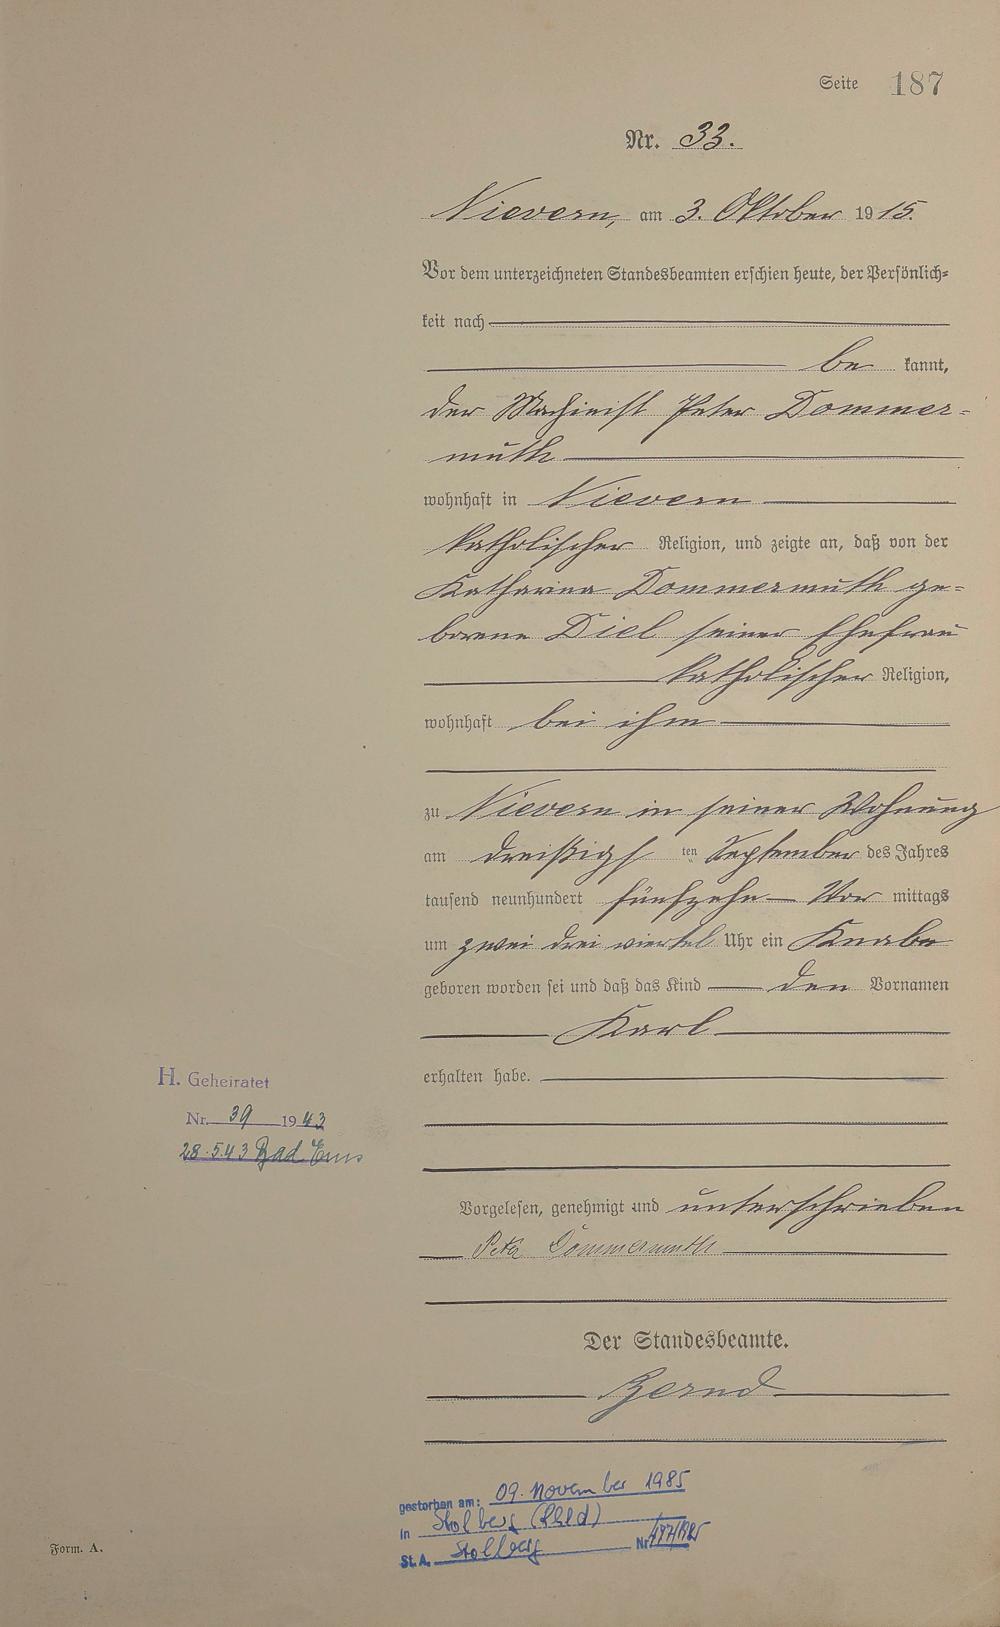 Seite 187
Nr. 33.
Nievern, am 3. Oktober 1915.
Vor dem unterzeichneten Standesbeamten erschien heute, der Persönlich-
keit nach
be kannt,
der Maschinist Peter Dommer-
muth
wohnhaft in Nievern
katholischer Religion, und zeigte an, daß von der
Katharina Dommermuth ge-
borene Diel seiner Ehefrau
katholischer Religion,
wohnhaft bei ihm
zu Nievern in seiner Wohnung
am dreißigs ten September des Jahres
tausend neunhundert fünfzehn Vor mittags
um zwei drei viertel Uhr ein Knabe
geboren worden sei und daß das Kind den Vornamen
Karl
erhalten habe.
H. Geheiratet
Nr. 39 1943
28.5.43 Bad Ems
Vorgelesen, genehmigt und unterschrieben
Peter Dommermuth
Der Standesbeamte.
gestorben am: 09. November 1985
in Stolberg (Rhld)
St.A. Stolberg Nr.
Form. A.